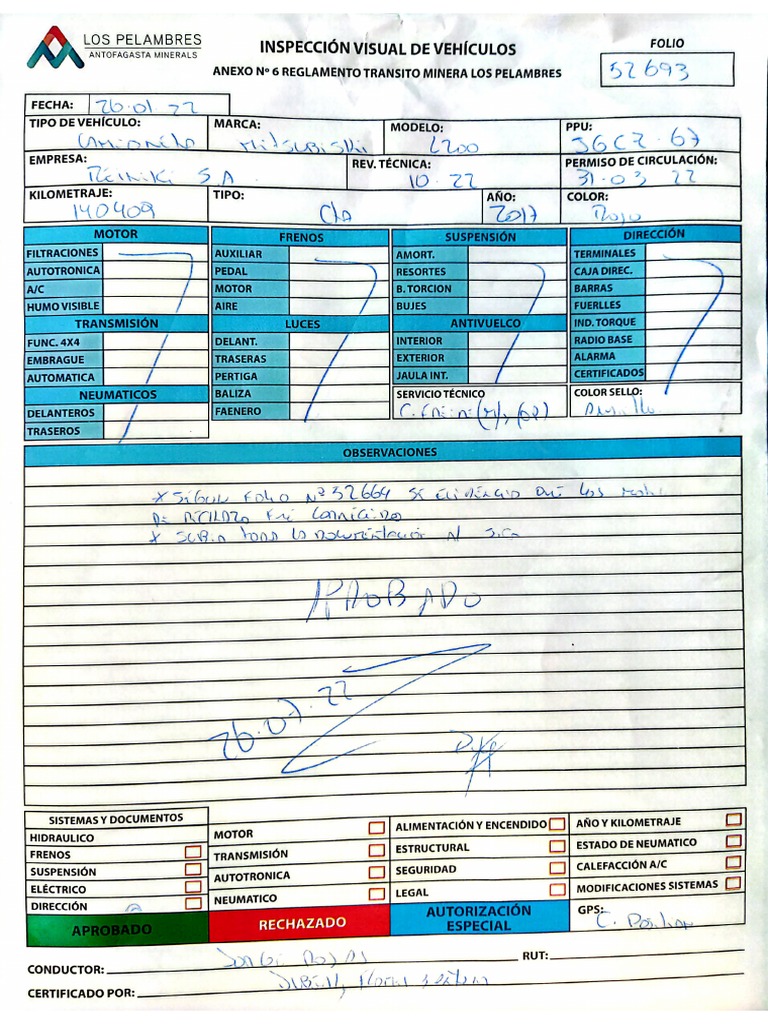 LOS PELAMBRES
ANTOFAGASTA MINERALS
INSPECCIÓN VISUAL DE VEHÍCULOS
ANEXO Nº 6 REGLAMENTO TRANSITO MINERA LOS PELAMBRES
FOLIO
52693
FECHA: 26.01.22
TIPO DE VEHÍCULO: Camioneta MARCA: Mitsubishi MODELO: L200 PPU: JGCZ-67
EMPRESA: S.A REV. TÉCNICA: 10.22 PERMISO DE CIRCULACIÓN: 31.03 22
KILOMETRAJE: 140409 TIPO: AÑO: 2017 COLOR: Rojo
MOTOR FRENOS SUSPENSIÓN DIRECCIÓN
FILTRACIONES AUXILIAR AMORT. TERMINALES
AUTOTRONICA PEDAL RESORTES CAJA DIREC.
A/C MOTOR B. TORCION BARRAS
HUMO VISIBLE AIRE BUJES FUERLLES
TRANSMISIÓN LUCES ANTIVUELCO IND. TORQUE
FUNC. 4X4 DELANT. INTERIOR RADIO BASE
EMBRAGUE TRASERAS EXTERIOR ALARMA
AUTOMATICA PERTIGA JAULA INT. CERTIFICADOS
NEUMATICOS BALIZA SERVICIO TÉCNICO COLOR SELLO:
DELANTEROS FAENERO
TRASEROS
OBSERVACIONES
* Según Folio Nº 52664 se que los
de rechazo
* toda la documentación al
APROBADO
SISTEMAS Y DOCUMENTOS
HIDRAULICO MOTOR ALIMENTACIÓN Y ENCENDIDO AÑO Y KILOMETRAJE
FRENOS TRANSMISIÓN ESTRUCTURAL ESTADO DE NEUMATICO
SUSPENSIÓN AUTOTRONICA SEGURIDAD CALEFACCIÓN A/C
ELÉCTRICO NEUMATICO LEGAL MODIFICACIONES SISTEMAS
DIRECCIÓN
APROBADO RECHAZADO AUTORIZACIÓN ESPECIAL GPS:
CONDUCTOR: Jorge Rojas RUT:
CERTIFICADO POR: